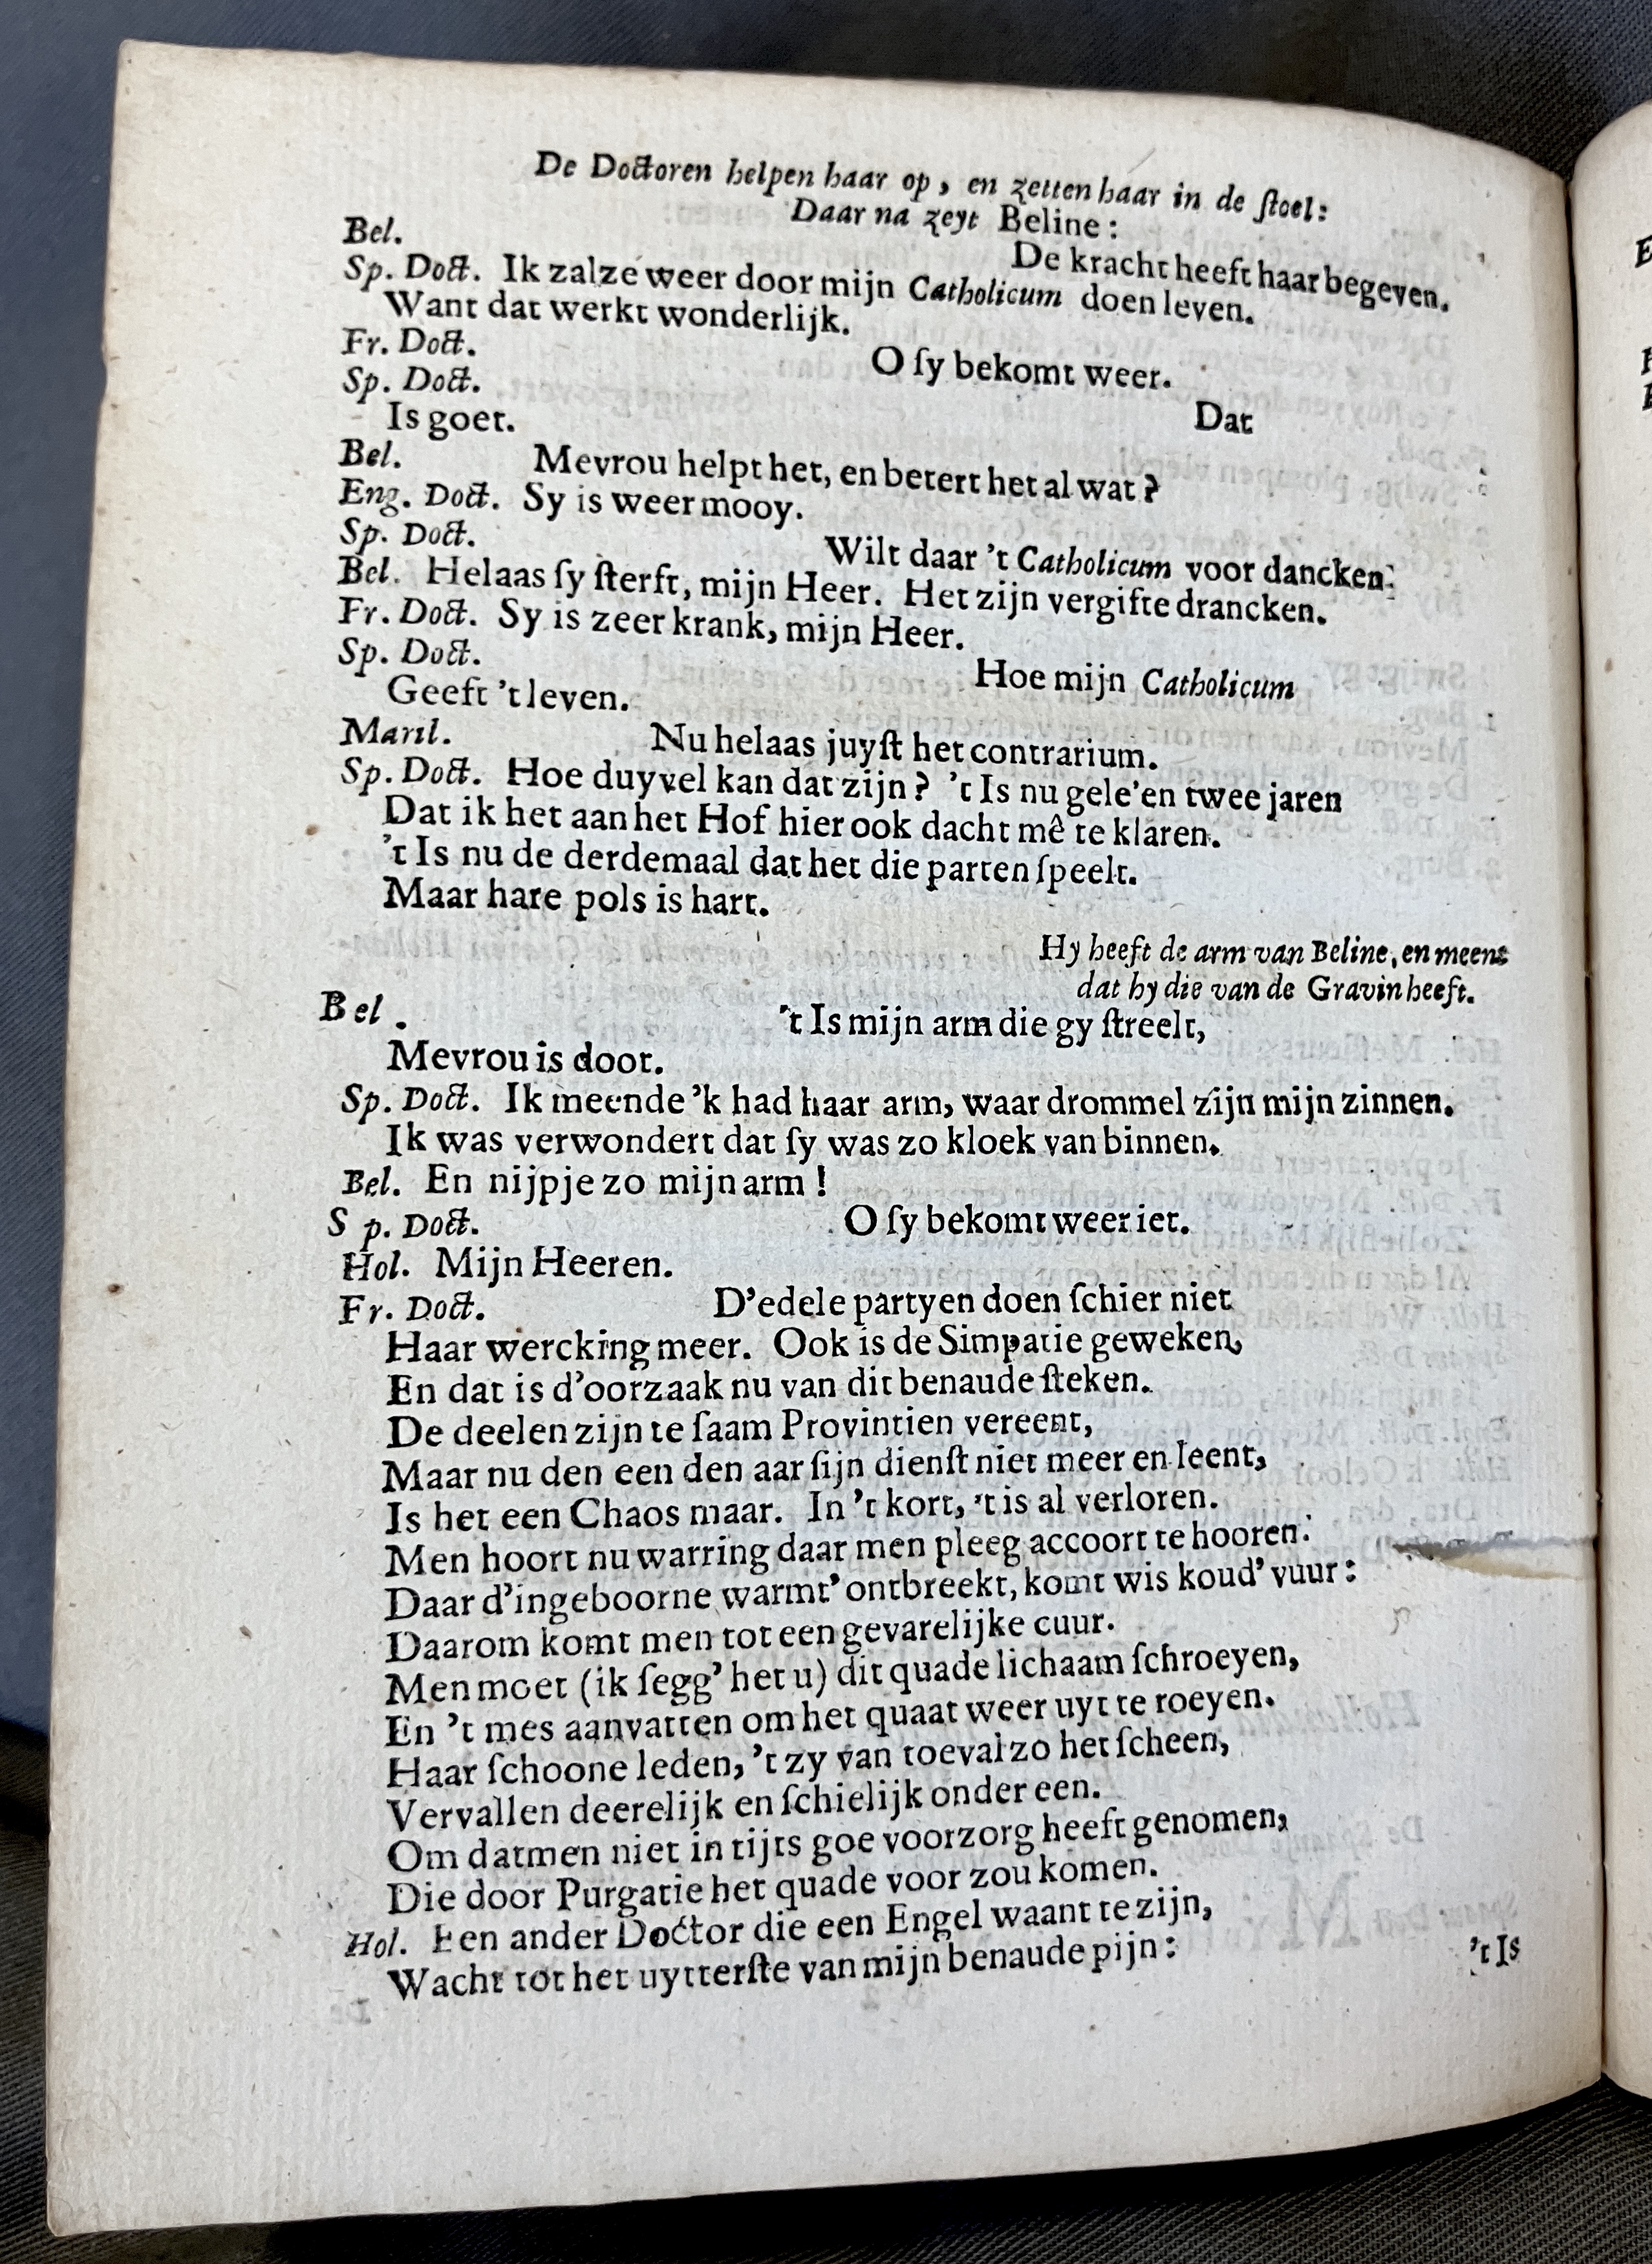 De Doctoren helpen haar op, en zetten haar in de ſtoel:
Daar na zeyt Beline:
Bel. De kracht heeft haar begeven.
Sp. Doct. Ik zalze weer door mijn Catholicum doen leven.
Want dat werkt wonderlijk.
Fr. Doct. O ſy bekomt weer.
Sp. Doct. Dat
Is goet.
Bel. Mevrou helpt het, en betert het al wat?
Eng. Doct. Sy is weer mooy.
Sp. Doct. Wilt daar 't Catholicum voor dancken.
Bel. Helaas ſy ſterft, mijn Heer. Het zijn vergifte drancken.
Fr. Doct. Sy is zeer krank, mijn Heer.
Sp. Doct. Hoe mijn Catholicum
Geeft 't leven.
Maril. Nu helaas juyſt het contrarium.
Sp. Doct. Hoe duyvel kan dat zijn? 't Is nu gele'en twee jaren
Dat ik het aan het Hof hier ook dacht mê te klaren.
't Is nu de derdemaal dat het die parten ſpeelt.
Maar hare pols is hart.
Hy heeft de arm van Beline, en meent
dat hy die van de Gravin heeft.
Bel. 't Is mijn arm die gy ſtreelt,
Mevrou is doot.
Sp. Doct. Ik meende 'k had haar arm, waar drommel zijn mijn zinnen.
Ik was verwondert dat ſy was zo kloek van binnen.
Bel. En nijpje zo mijn arm!
Sp. Doct. O ſy bekomt weer iet.
Hol. Mijn Heeren.
Fr. Doct. D'edele partyen doen ſchier niet
Haar wercking meer. Ook is de Simpatie geweken,
En dat is d'oorzaak nu van dit benaude ſteken.
De deelen zijn te ſaam Provintien vereent,
Maar nu den een den aar ſijn dienſt niet meer en leent,
Is het een Chaos maar. In 't kort, 't is al verloren.
Men hoort nu warring daar men pleeg accoort te hooren.
Daar d'ingeboorne warmt' ontbreekt, komt wis koud' vuur:
Daarom komt men tot een gevarelijke cuur.
Men moet (ik ſegg' het u) dit quade lichaam ſchroeyen,
En 't mes aanvatten om het quaat weer uyt te roeyen.
Haar ſchoone leden, 't zy van toeval zo het ſcheen,
Vervallen deerelijk en ſchielijk onder een.
Om datmen niet in tijts goe voorzorg heeft genomen,
Die door Purgatie het quade voor zou komen.
Hol. Een ander Doctor die een Engel waant te zijn,
Wacht tot het uytterſte van mijn benaude pijn:
't Is